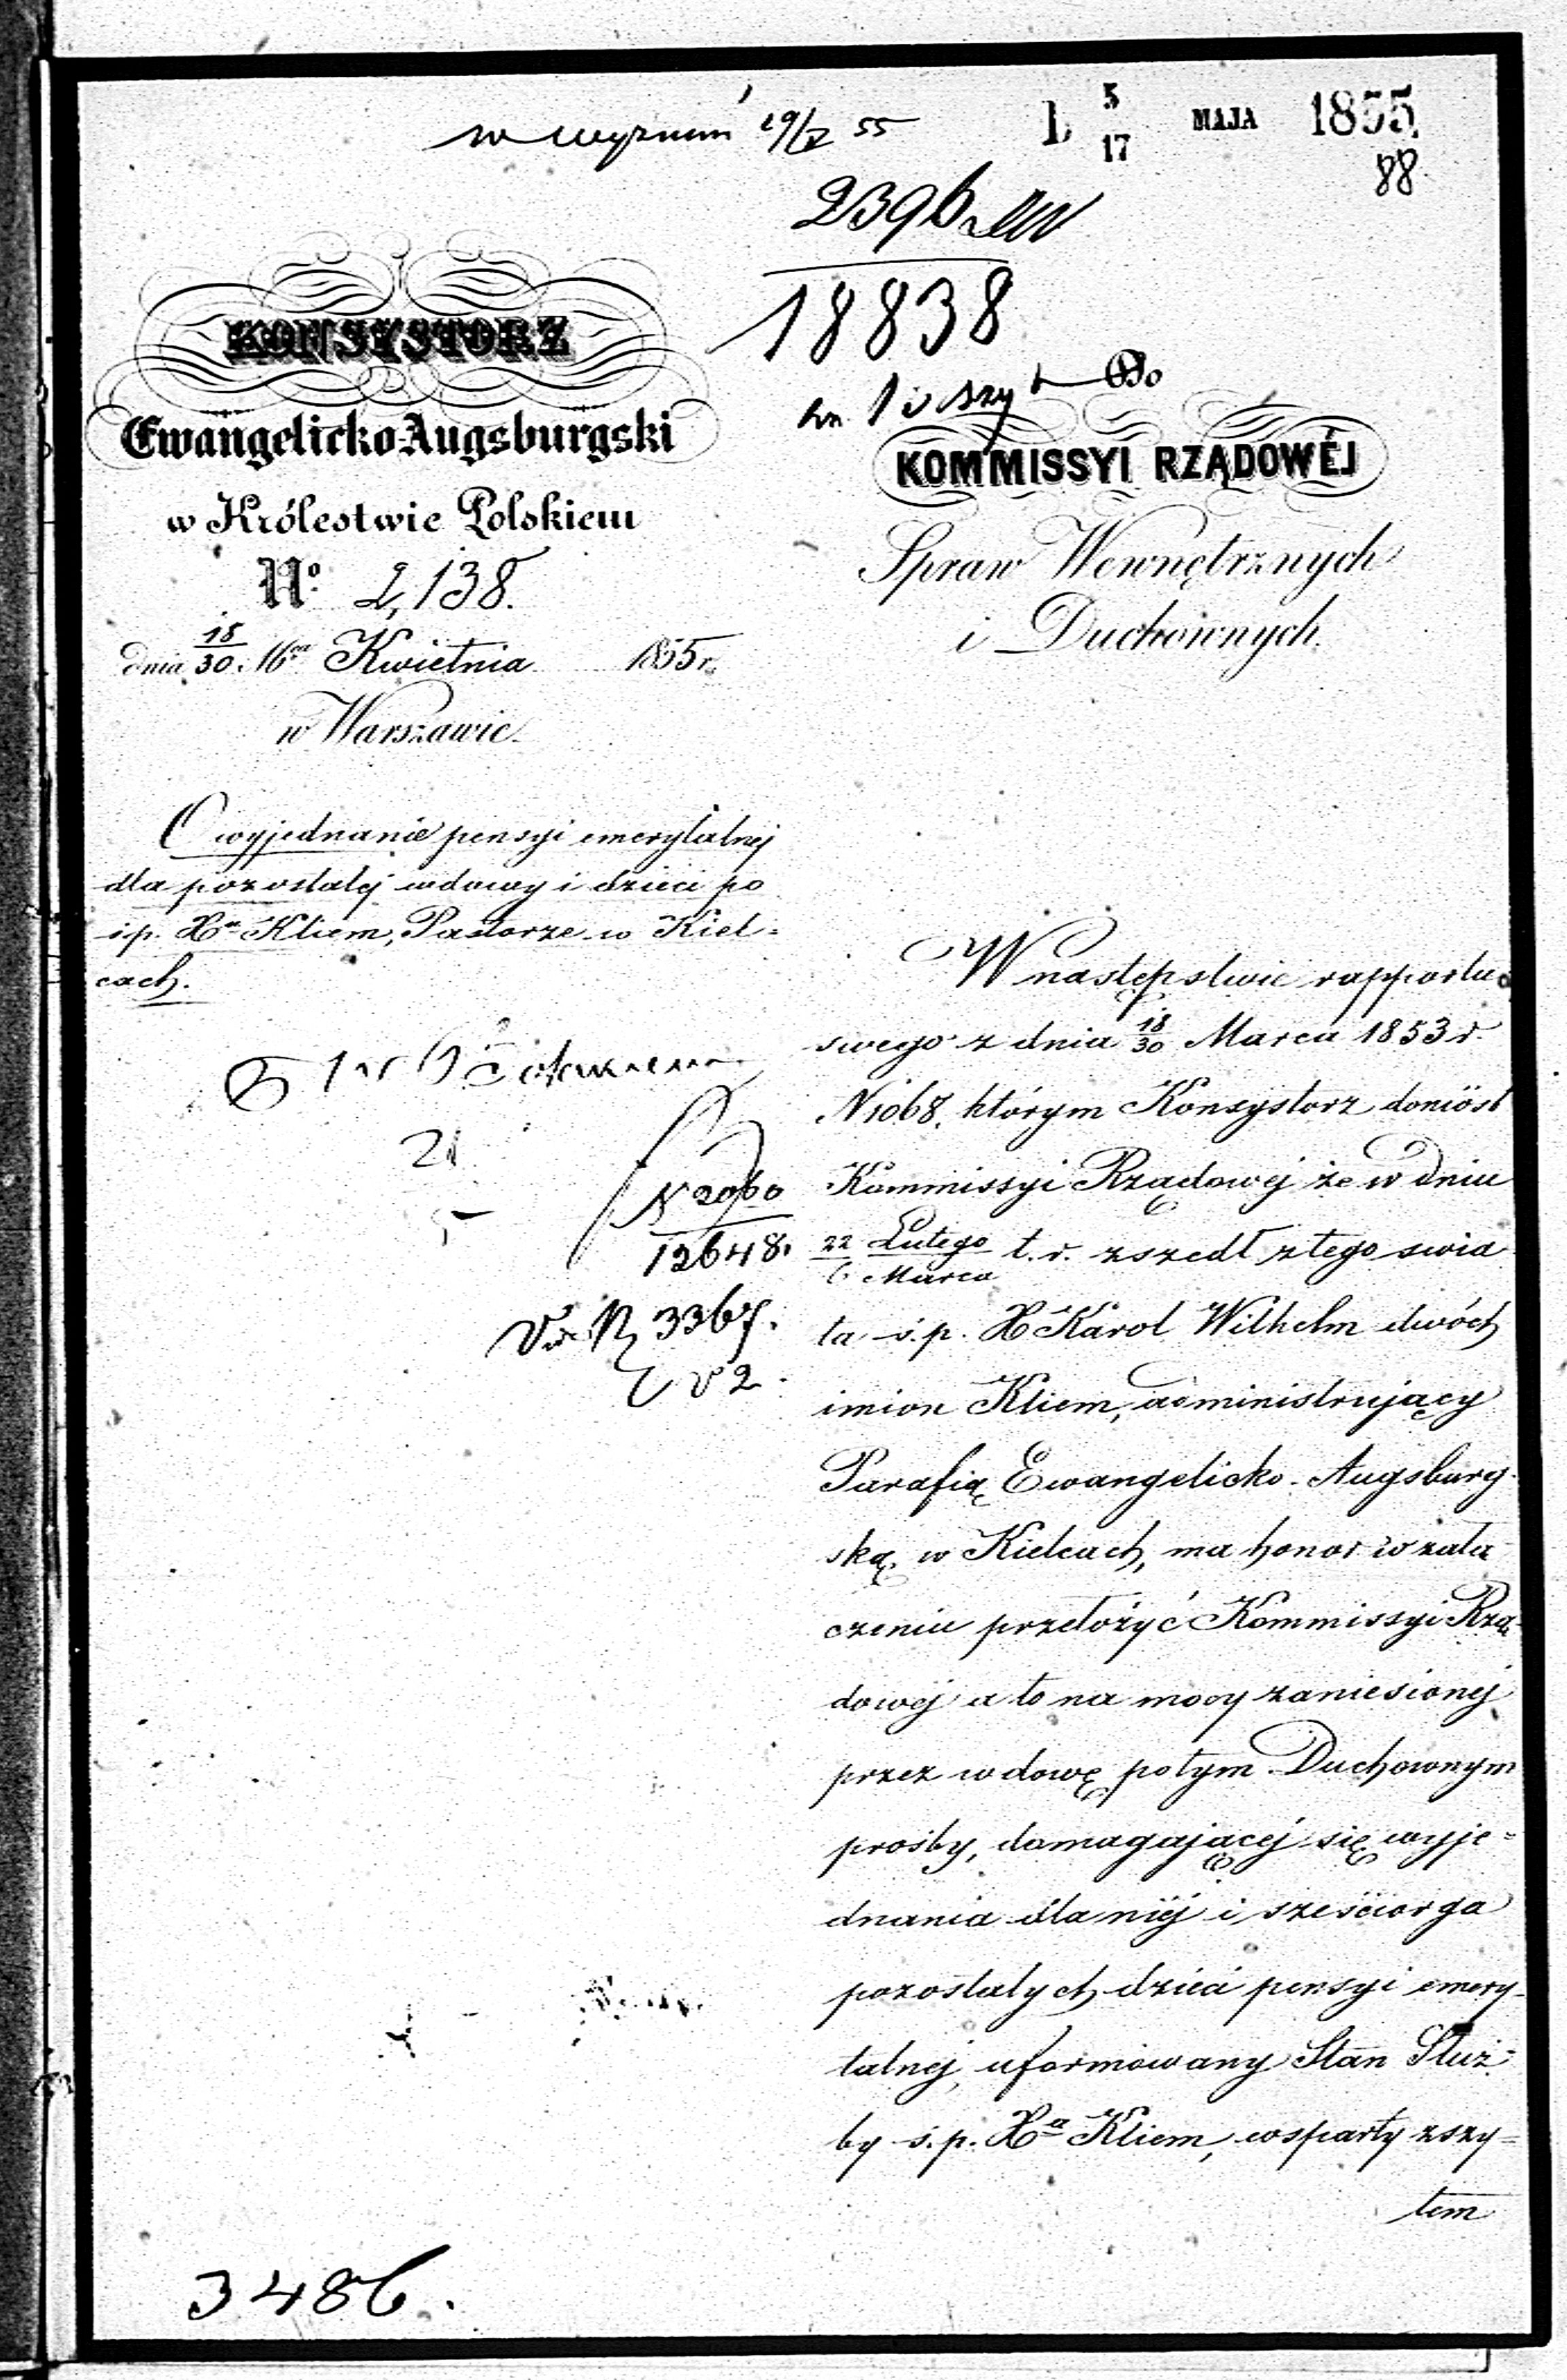 w 19/V 55
5/17 MAJA 1855
88
2396
18838
KONSYSTORZ
Ewangelicko-Augsburgski
w Królestwie Polskiem
Nº 2,138.
dnia 18/30 Kwietnia 1855 r.
w Warszawie
Do
KOMMISSYI RZĄDOWÉJ
Spraw Wewnętrznych
i Duchownych.
O wyjednanie pensyi emerytalnej
dla pozostałej wdowy i dzieci po
ś.p. Xa Kliem, Pastorze w Kiel=
cach.
21
N 2060
12648.
N 3367.
2.
W następstwie rapportu
swego z dnia 18/30 Marca 1853 r.
N 1068, którym Konsystorz doniósł
Kommissyi Rządowej że w dniu
22 Lutego / 6 Marca t.r. zszedł z tego świa
ta ś.p. X Karol Wilhelm dwóch
imion Kliem, administrujący
Parafią Ewangelicko-Augsburg-
ską w Kielcach, ma honor w załą
czeniu przełożyć Kommissyi Rzą-
dowej a to na mocy zaniesionej
przez wdowę po tym Duchownym
prośby, domagającej się wyje=
dnania dla niéj i sześciorga
pozostałych dzieci pensyi emery-
talnej, uformowany Stan Służ=
by ś.p. Xa Kliem, wsparty zszy=
tem
3486.